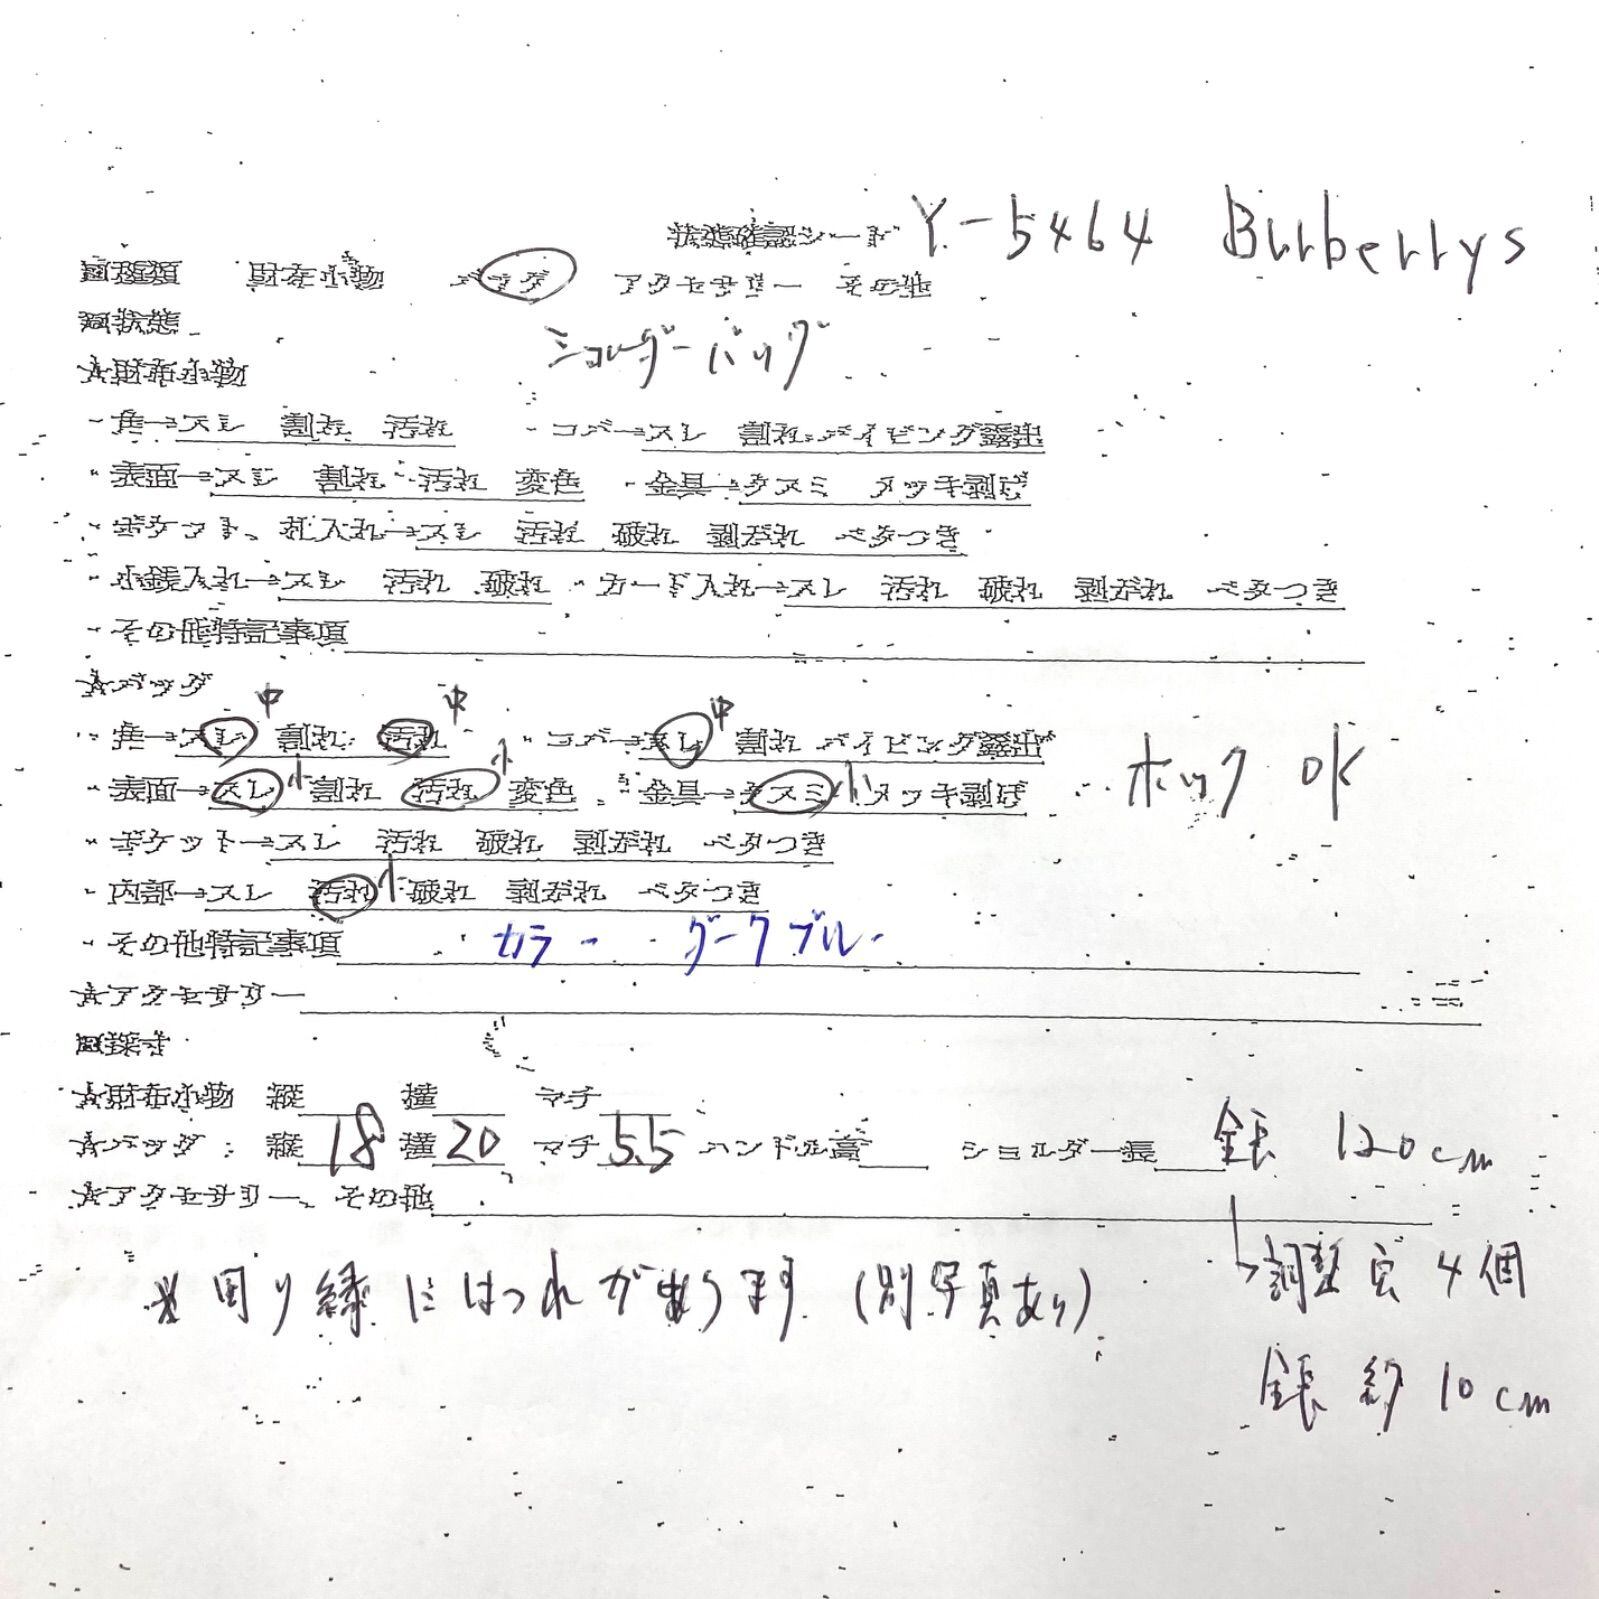 状態確認シート Y-5464 Burberrys
■種類 財布小物 バッグ アクセサリー その他
■状態 ショルダーバッグ
★財布小物
・角→スレ 割れ 汚れ ・コバ→スレ 割れ パイピング露出
・表面→スレ 割れ 汚れ 変色 ・金具→クスミ メッキ剥げ
・ポケット、札入れ→スレ 汚れ 破れ 剥がれ ベタつき
・小銭入れ→スレ 汚れ 破れ ・カード入れ→スレ 汚れ 破れ 剥がれ ベタつき
・その他特記事項
★バッグ
・角→スレ 中 割れ 汚れ 中 ・コバ→スレ 中 割れ パイピング露出
・表面→スレ 小 割れ 汚れ 小 変色 ・金具→クスミ 小 メッキ剥げ ホック OK
・ポケット→スレ 汚れ 破れ 剥がれ ベタつき
・内部→スレ 汚れ 小 破れ 剥がれ ベタつき
・その他特記事項 カラー ダークブルー
★アクセサリー
■採寸
★財布小物 縦 横 マチ
★バッグ 縦 18 横 20 マチ 5.5 ハンドル高 ショルダー長 全長 120cm
★アクセサリー、その他
調整穴 4個
※周り縁にほつれがあります (別写真あり)
全長 約10cm